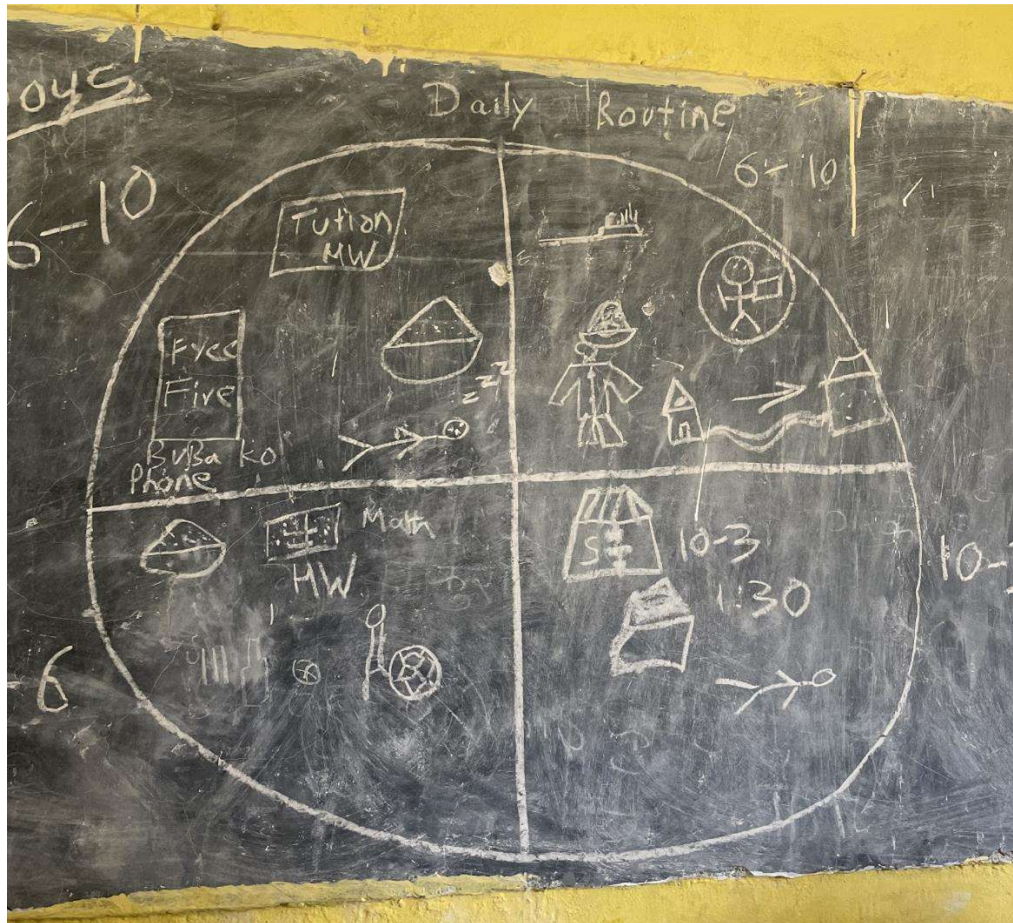 oys
Daily Routine
6-10
6-10
Tution
MW
Fyee
Five
BuBa ko
Phone
zzz
Math
HW
S
10-3
1:30
10-
-6